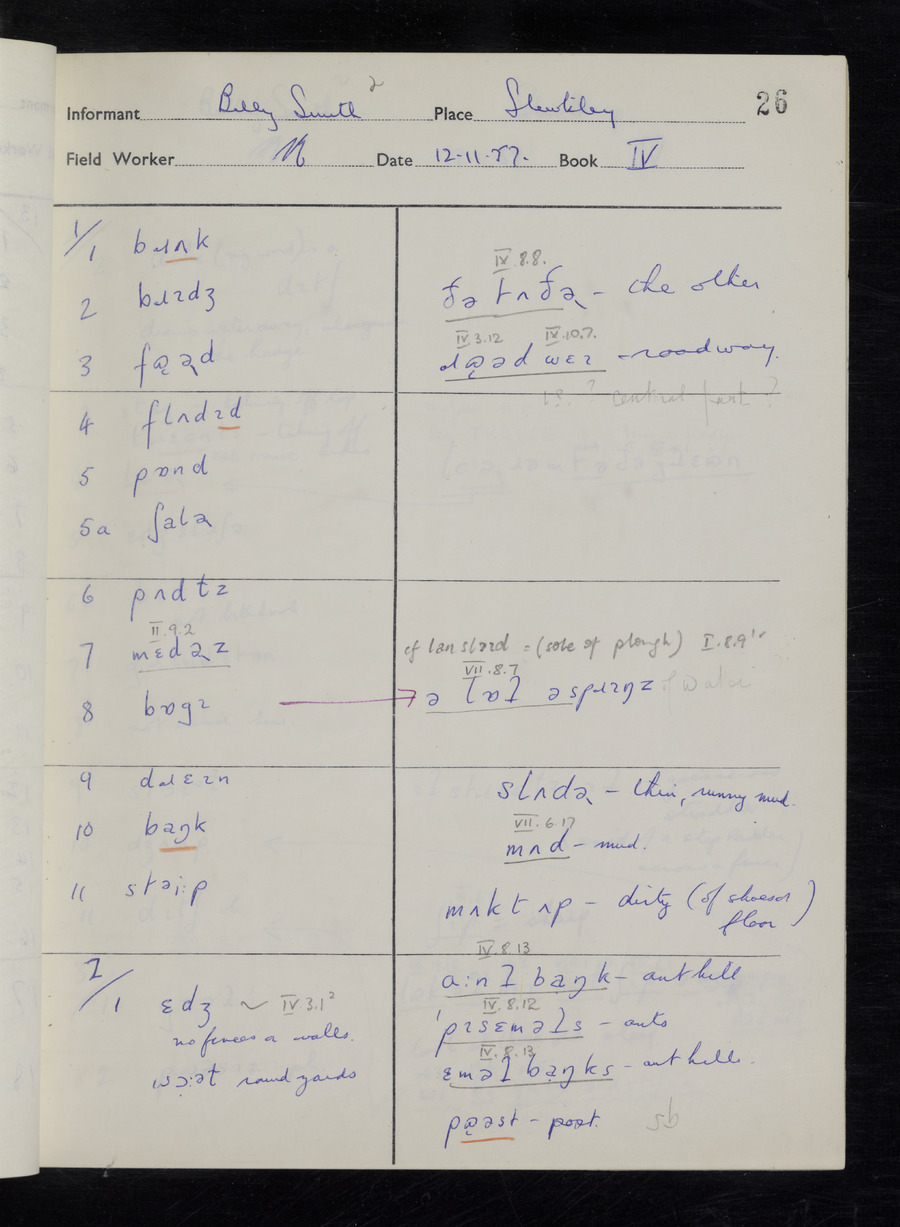 26
Informant Billy Smith 2 Place Stewkley
Field Worker Date 12-11-57. Book IV
1/1 bɹʌnk
2 bɹɪdʒ
3 fɔ̨əd
4 flʌdɪd
5 pɒnd
5a ʃalə
6 pʌdɫz
II.9.2
7 mɛdəz
8 bɒgɪ
9 dɹɛɪn
10 baŋk
11 stəi:p
I/1 ɛdʒ ~ IV 3.1²
no fences or walls.
round yards
IV 8.8.
ðə tʌðə - the other
IV.3.12 IV.10.7.
ɹəəd wɛɪ - roadway.
i.e. ? central part ?
cf lanslaɪd = (sole of plough) I.8.9
VII.8.7
ə lɒɫ ə spɹɪŋz of water
slʌdə - thin, runny mud.
VII.6.17
mʌd - mud.
mʌkt ʌp - dirty (of shoes or
floor)
IV.8.13
a:nɫ baŋk - ant hill
IV.8.12
'pɪsɛməɫs - ants
IV.8.13
ɛməɫ baŋks - ant hills.
pəəst - post.